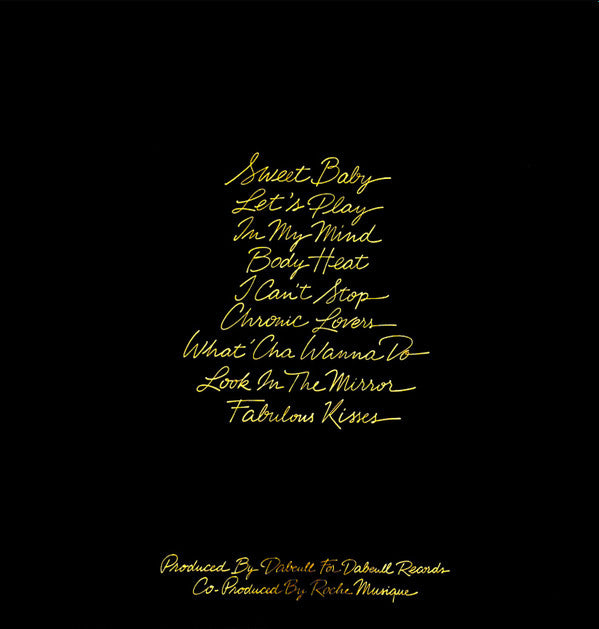 Sweet Baby
Let's Play
In My Mind
Body Heat
I Can't Stop
Chronic Lovers
What'Cha Wanna Do
Look In The Mirror
Fabulous Kisses
Produced By Dabeull For Dabeull Records
Co-Produced By Roche Musique